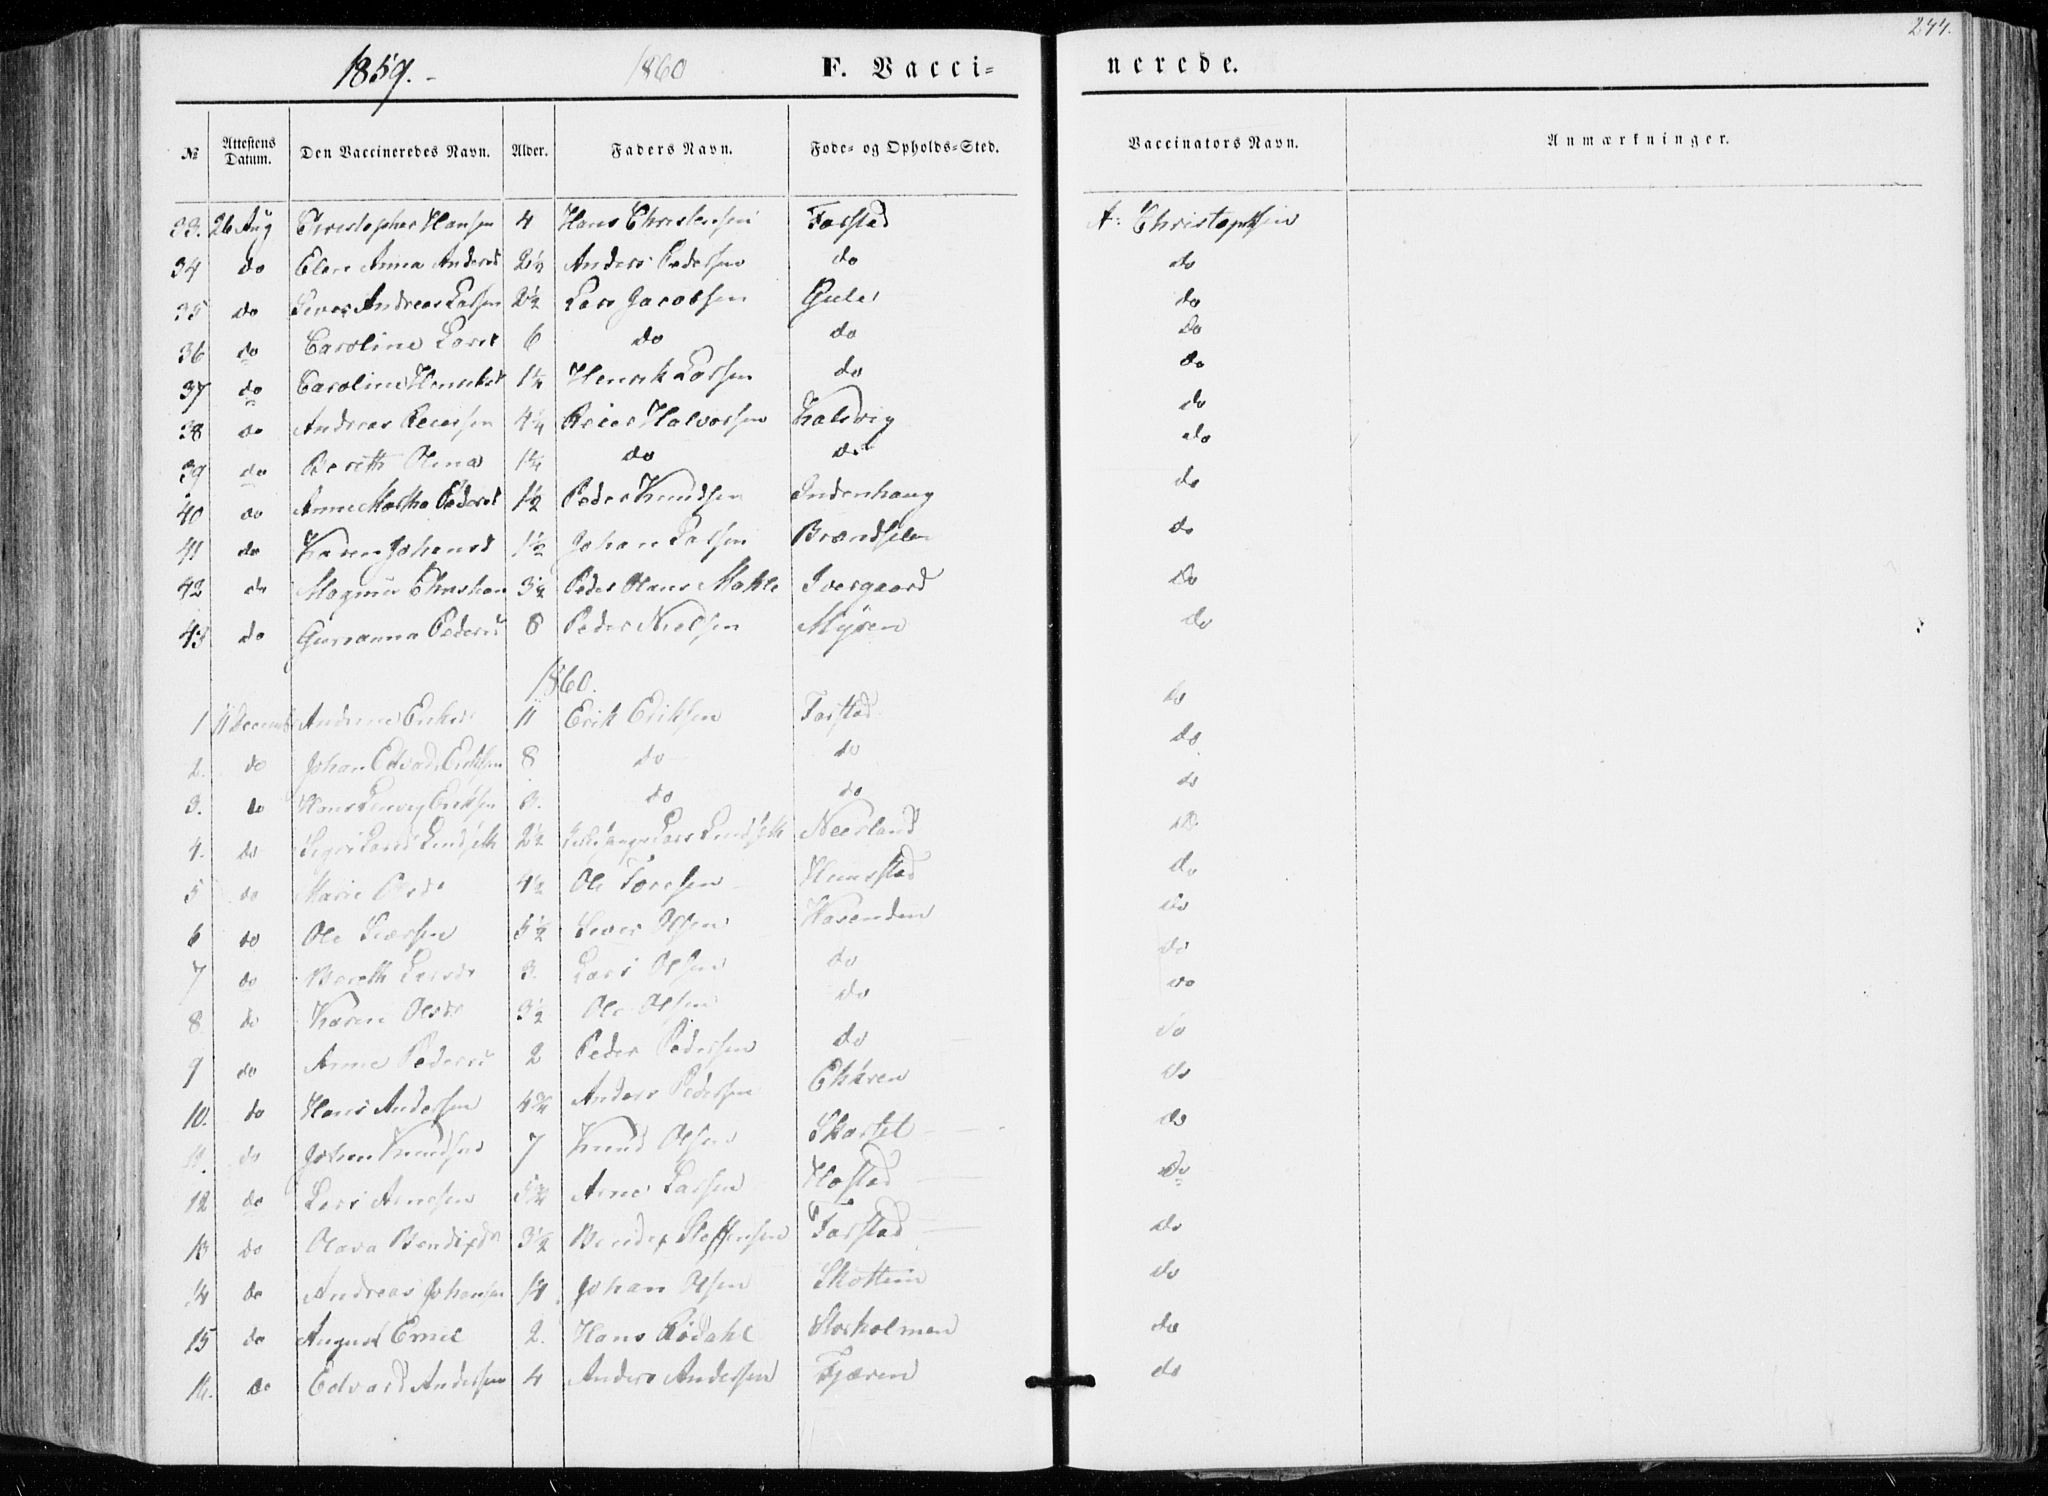 244.
1859.- 1860 F. Vacci= nerede.
№ Attestens Datum. Den Vaccineredes Navn. Alder. Faders Navn. Føde- og Opholds-Sted. Vaccinators Navn. Anmærkninger.
33. 26 Aug Christopher Hansen 4 Hans Christensen Farstad A. Christophsen
34 do Elen Anna Andersd 2½ Anders Pedersen do do
35 do Sever Andreas Larsen 2½ Lars Jacobsen Gule do
36 do Caroline Larsd 6 do do do
37 do Caroline Henrikd 1¼ Henrik Larsen do do
38 do Andreas Reiersen 4¼ Reier Halvorsen Kalsvig do
39 do Berith Olina 1¼ do do do
40 do Anne Martha Pedersd 1½ Peder Knudsen Indenhaug do
41 do Karen Johansd 1½ Johan Larsen do
42 do Magnus Christian 3½ Peder Hans Mahle Ivergaard do
43 do Gurianna Pedersd 8 Peder Nielsen Myren do
1860.
1 11 Decemb Eriksd 11 Erik Eriksen Farstad do
2. do Johan Edvard Eriksen 8 do do do
3. do Hans Eriksen 3. do do do
4. do 2½ Lars Neerland do
5 do Marie Olsd 4½ Ole Toresen Hemstad do
6 do Ole Siversen 5½ Sever Olsen Hasenden do
7 do Bereth Larsd 3. Lars Olsen do do
8 do Karen Olsd 3½ Ole Olsen do do
9 do Anne Pedersd 2 Peder Pedersen do do
10. do Hans Andersen 4¾ Anders Pedersen do
11. do Johan Knudsen 7 Knud Olsen Skartet do
12 do Lars Arnesen 5¾ Arne Larsen Hostad do
13 do Olava Bendixd 3½ Bendix Steffensen Farstad do
14 do Andreas Johansen 14 Johan Olsen do
15 do August Emil 2. Hans Rødahl Storholmen do
16. do Edvard Andersen 4 Anders Andersen Fjæren do